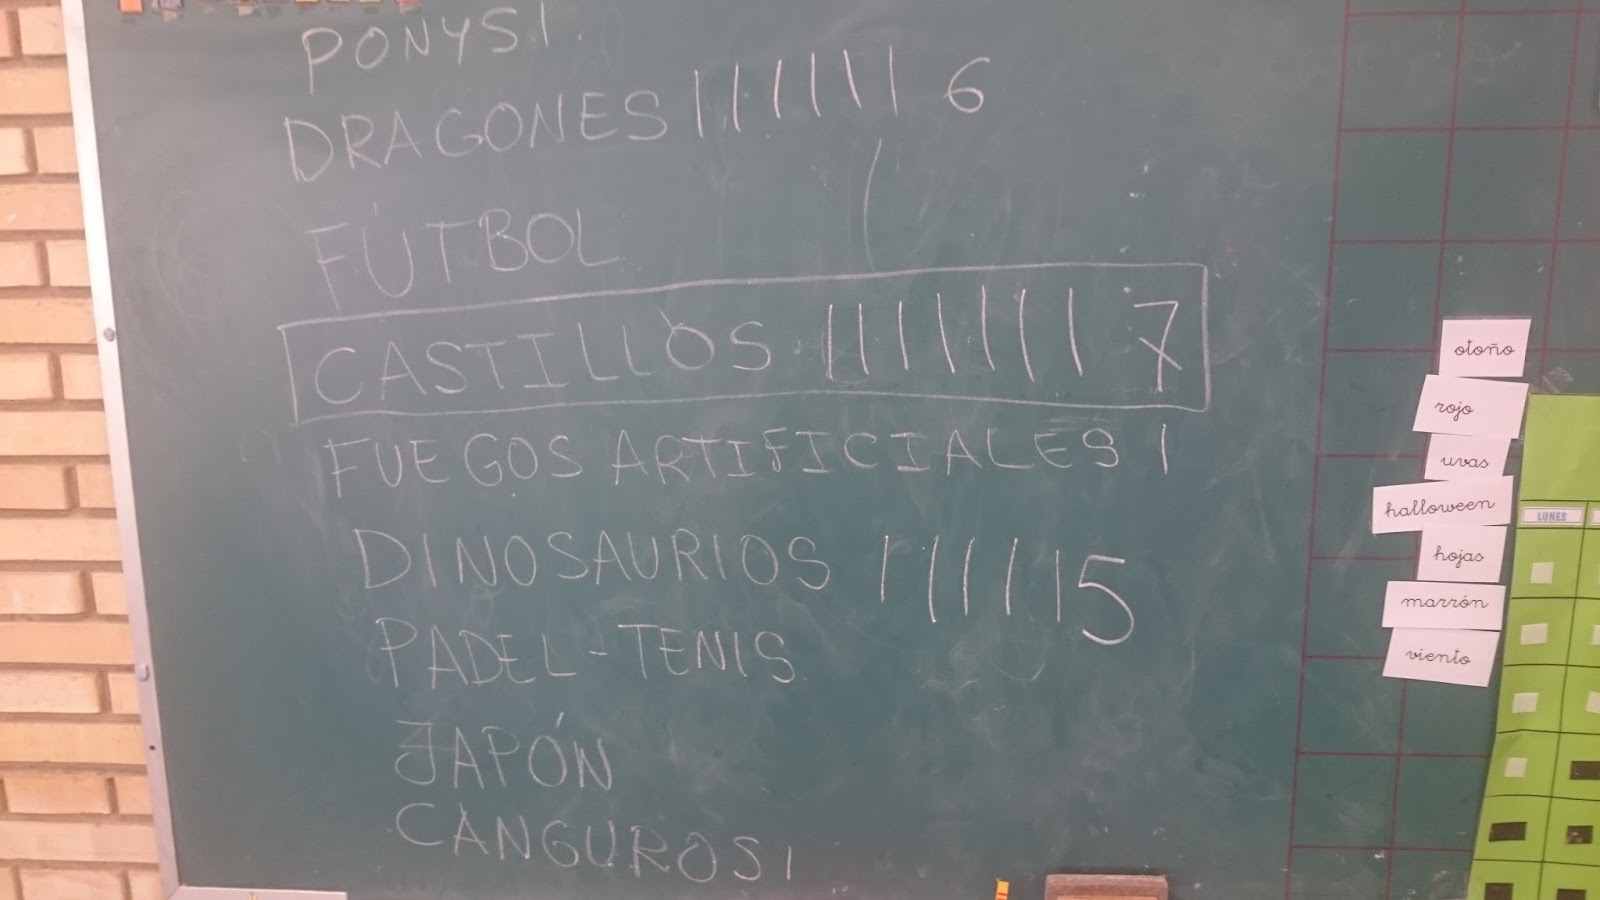 PONYS I
DRAGONES |||||| 6
FÚTBOL
CASTILLOS ||||||| 7
FUEGOS ARTIFICIALES I
DINOSAURIOS ||||| 5
PADEL-TENIS
JAPÓN
CANGUROS I
otoño
rojo
uvas
halloween
hojas
marrón
viento
LUNES